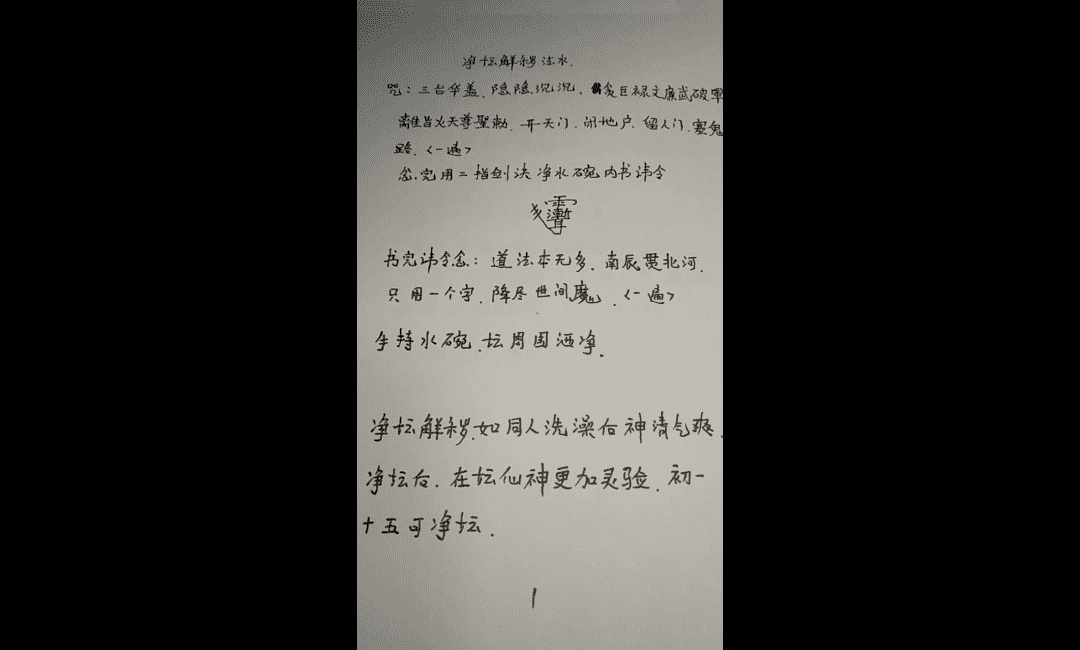 净坛解秽法水.
咒：三台华盖、隐隐沉沉、贪巨禄文廉武破軍
天尊聖勅、开天门、闭地户、留人门、塞鬼
路、<一遍>
念.完用二指剑决净水碗内书讳令
书完讳令念：道法本无多、南辰贯北河、
只用一个字、降尽世间魔、<一遍>
手持水碗、坛周围洒净.
净坛解秽、如同人洗澡后神清气爽.
净坛后.在坛仙神更加灵验、初一
十五可净坛.
1